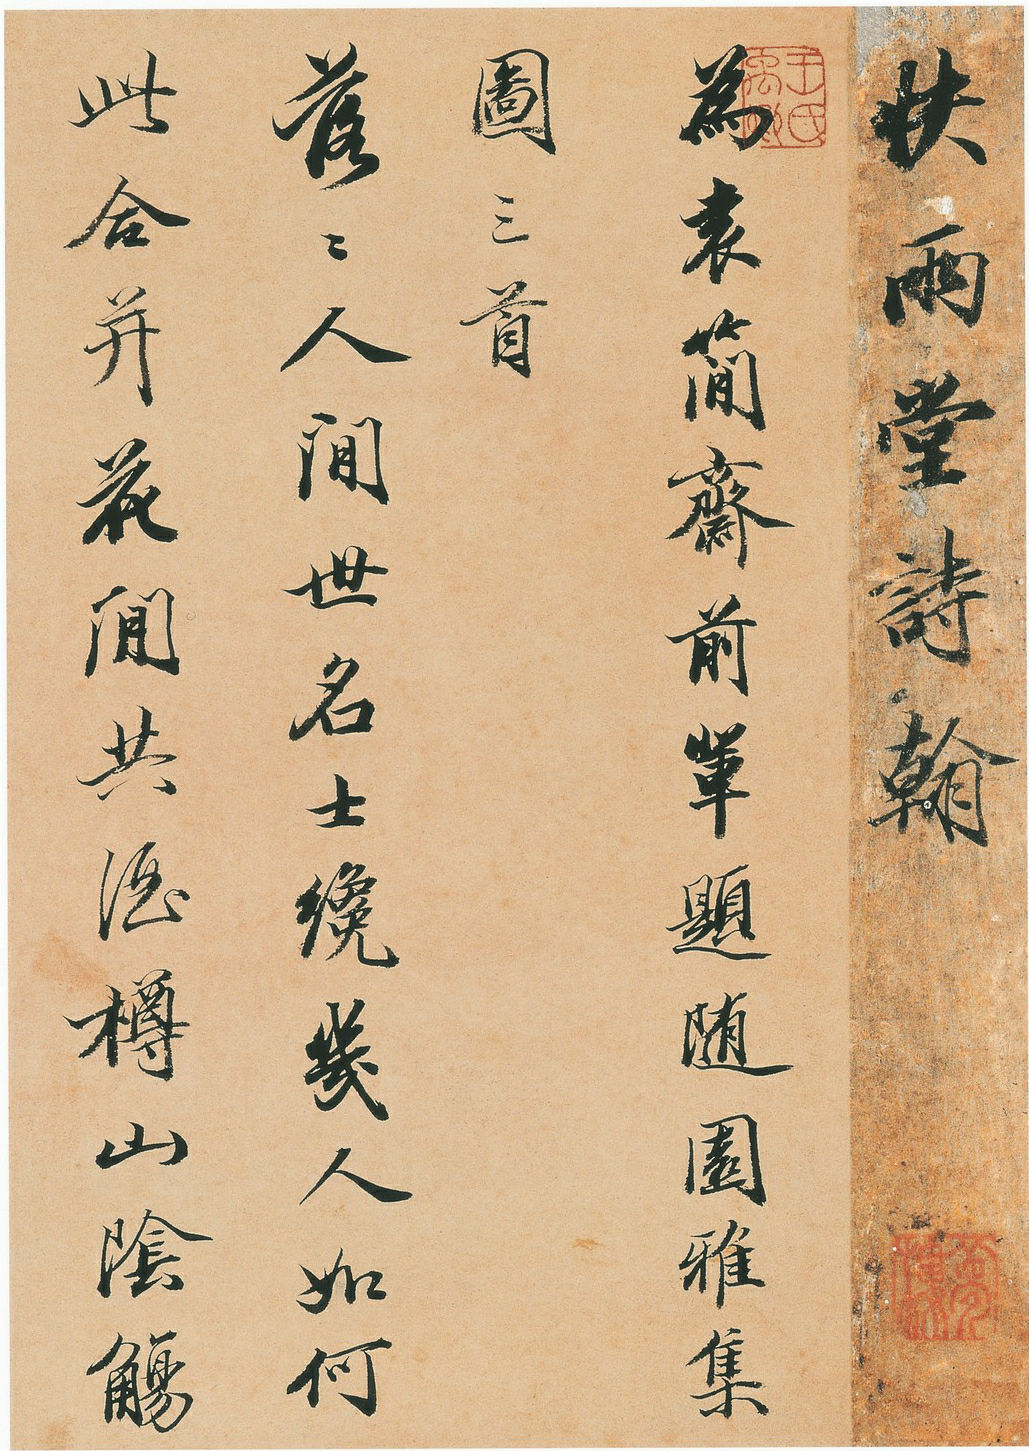 快雨堂詩翰
王氏禹卿
為袁簡齋前輩題随園雅集
圖三首
落〻人間世名士纔幾人如何
此合并花間共酒樽山陰觴